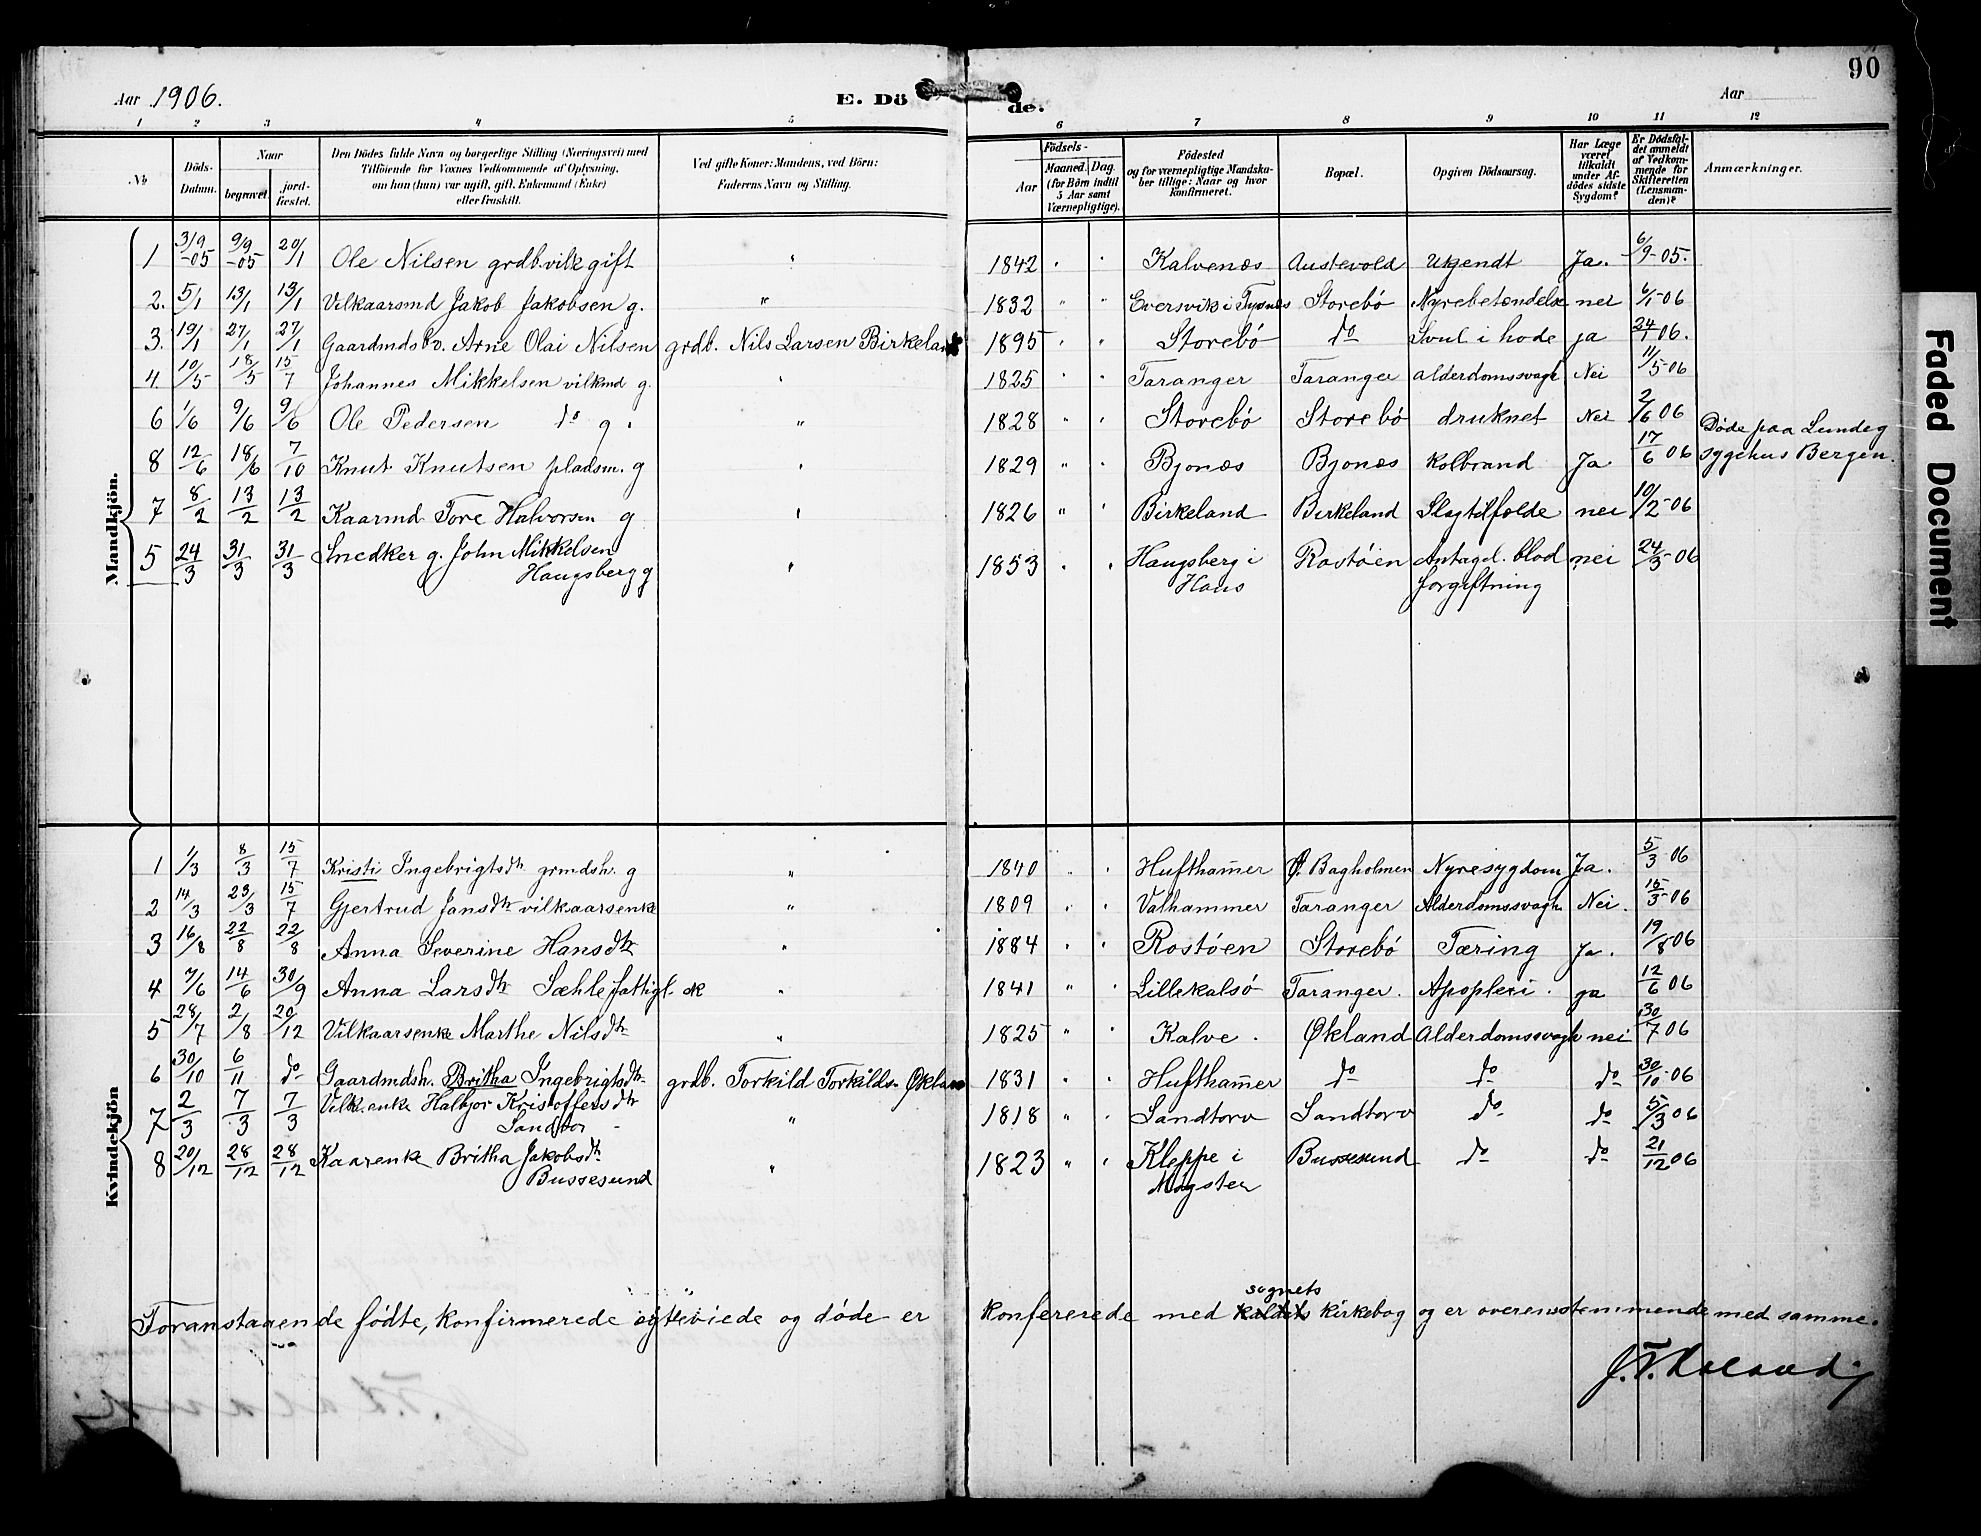 90
Aar 1906. E. Dö de. Aar
1 2 3 4 5 6 7 8 9 10 11 12
No Döds-Datum. Naar begravet. jord-fæstet. Den Dödes fulde Navn og borgerlige Stilling (Næringsvei) med Tilföiende for Voxnes Vedkommende af Oplysning, om han (hun) var ugift, gift, Enkemand (Enke) eller fraskilt. Ved gifte Koner: Mandens, ved Börn: Faderens Navn og Stilling. Födsels- Aar Maaned. Dag. (for Börn indtil 5 Aar samt Værnepligtige). Födested og for værnepligtige Mandska-ber tillige: Naar og hvor konfirmeret. Bopæl. Opgiven Dödsaarsag. Har Læge været tilkaldt under Af-dödes sidste Sygdom? Er Dödsfal-det anmeldt af Vedkom-mende for Skifteretten (Lensman-den)? Anmærkninger.
Mandkjön.
1 31/9 -05 9/9 -05 20/1 Ole Nilsen grdb.vilk gift " 1842 " " Kalvenæs Austevold Ukjendt Ja. 6/9-05.
2. 5/1 13/1 13/1 Vilkaarsmd Jakob Jakobsen g. " 1832 " " Eversvik i Tysnes Storebö Nyrebetændelse nei 6/1-06
3. 19/1 27/1 27/1 Gaardmdsbv. Arne Olai Nilsen grdb. Nils Larsen Birkeland 1895 " " Storebö do Svul i hode ja 24/1 06.
4. 10/5 18/5 15/7 Johannes Mikkelsen vilkmd g. " 1825 " " Taranger Taranger Alderdomssvagh Nei 11/5-06
6 1/6 9/6 9/6 Ole Pedersen do g. " 1828 " " Storebö Storebö druknet Nei 2/6 06
8 12/6 18/6 7/10 Knut Knutsen pladsm. g " 1829 " " Bjonæs Bjonæs Kolbrand Ja 17/6 06 Døde paa Lundeg sygehus Bergen.
7 8/2 13/2 13/2 Kaarmd Tore Halvorsen g " 1826 " " Birkeland Birkeland Slagtilfælde nei 10/2-06
5 24/3 31/3 31/3 Snedker g. John Mikkelsen " 1853 " " Haugsberg i Rostöen Antagel. blod nei 24/3-06
Haugsberg g Haus forgiftning
Kvindekjön
1 1/3 8/3 15/7 Kristi Ingebrigtsdtr grmdsh. g " 1840 " " Hufthammer Ø. Bagholmen Nyresygdom Ja. 5/3 06
2 14/3 23/3 15/7 Gjertrud Jansdtr vilkaarsenke " 1809 " " Valhammer Taranger Alderdomssvagh Nei. 15/3-06
3 16/8 22/8 22/8 Anna Severine Hansdtr " 1884 " " Rostöen Storebö Tæring Ja. 19/8 06
4 7/6 14/6 30/9 Anna Larsdtr Sæhle fattigl. " 1841 " " Lillekalsö Taranger. Apoplexi. ja 12/6 06
5 28/7 2/8 20/12 Vilkaarsenke Marthe Nilsdtr " 1825 " " Kalve. Økland Alderdomssvagh nei 30/7 06
6 30/10 6/11 do Gaardmdsh. Britha Ingebrigtsdtr grdb. Torkild Torkilds. Økland 1831 " " Hufthammer do do do 30/10-06
7 2/3 7/3 7/3 Vilk.enke Halbjor Kristoffersdtr " 1818 " " Sandtorv Sandtorv do do 5/3 06
Sandtor
8 20/12 28/12 28/12 Kaarenke Britha Jakobsdtr " 1823 " " Kleppe i Bussesund do do 21/12 06
Bussesund Mögster
sognets
Foranstaaende fødte, konfirmerede egteviede og døde er konfererede med kaldets kirkebog og er overensstemmende med samme.
Faded Document